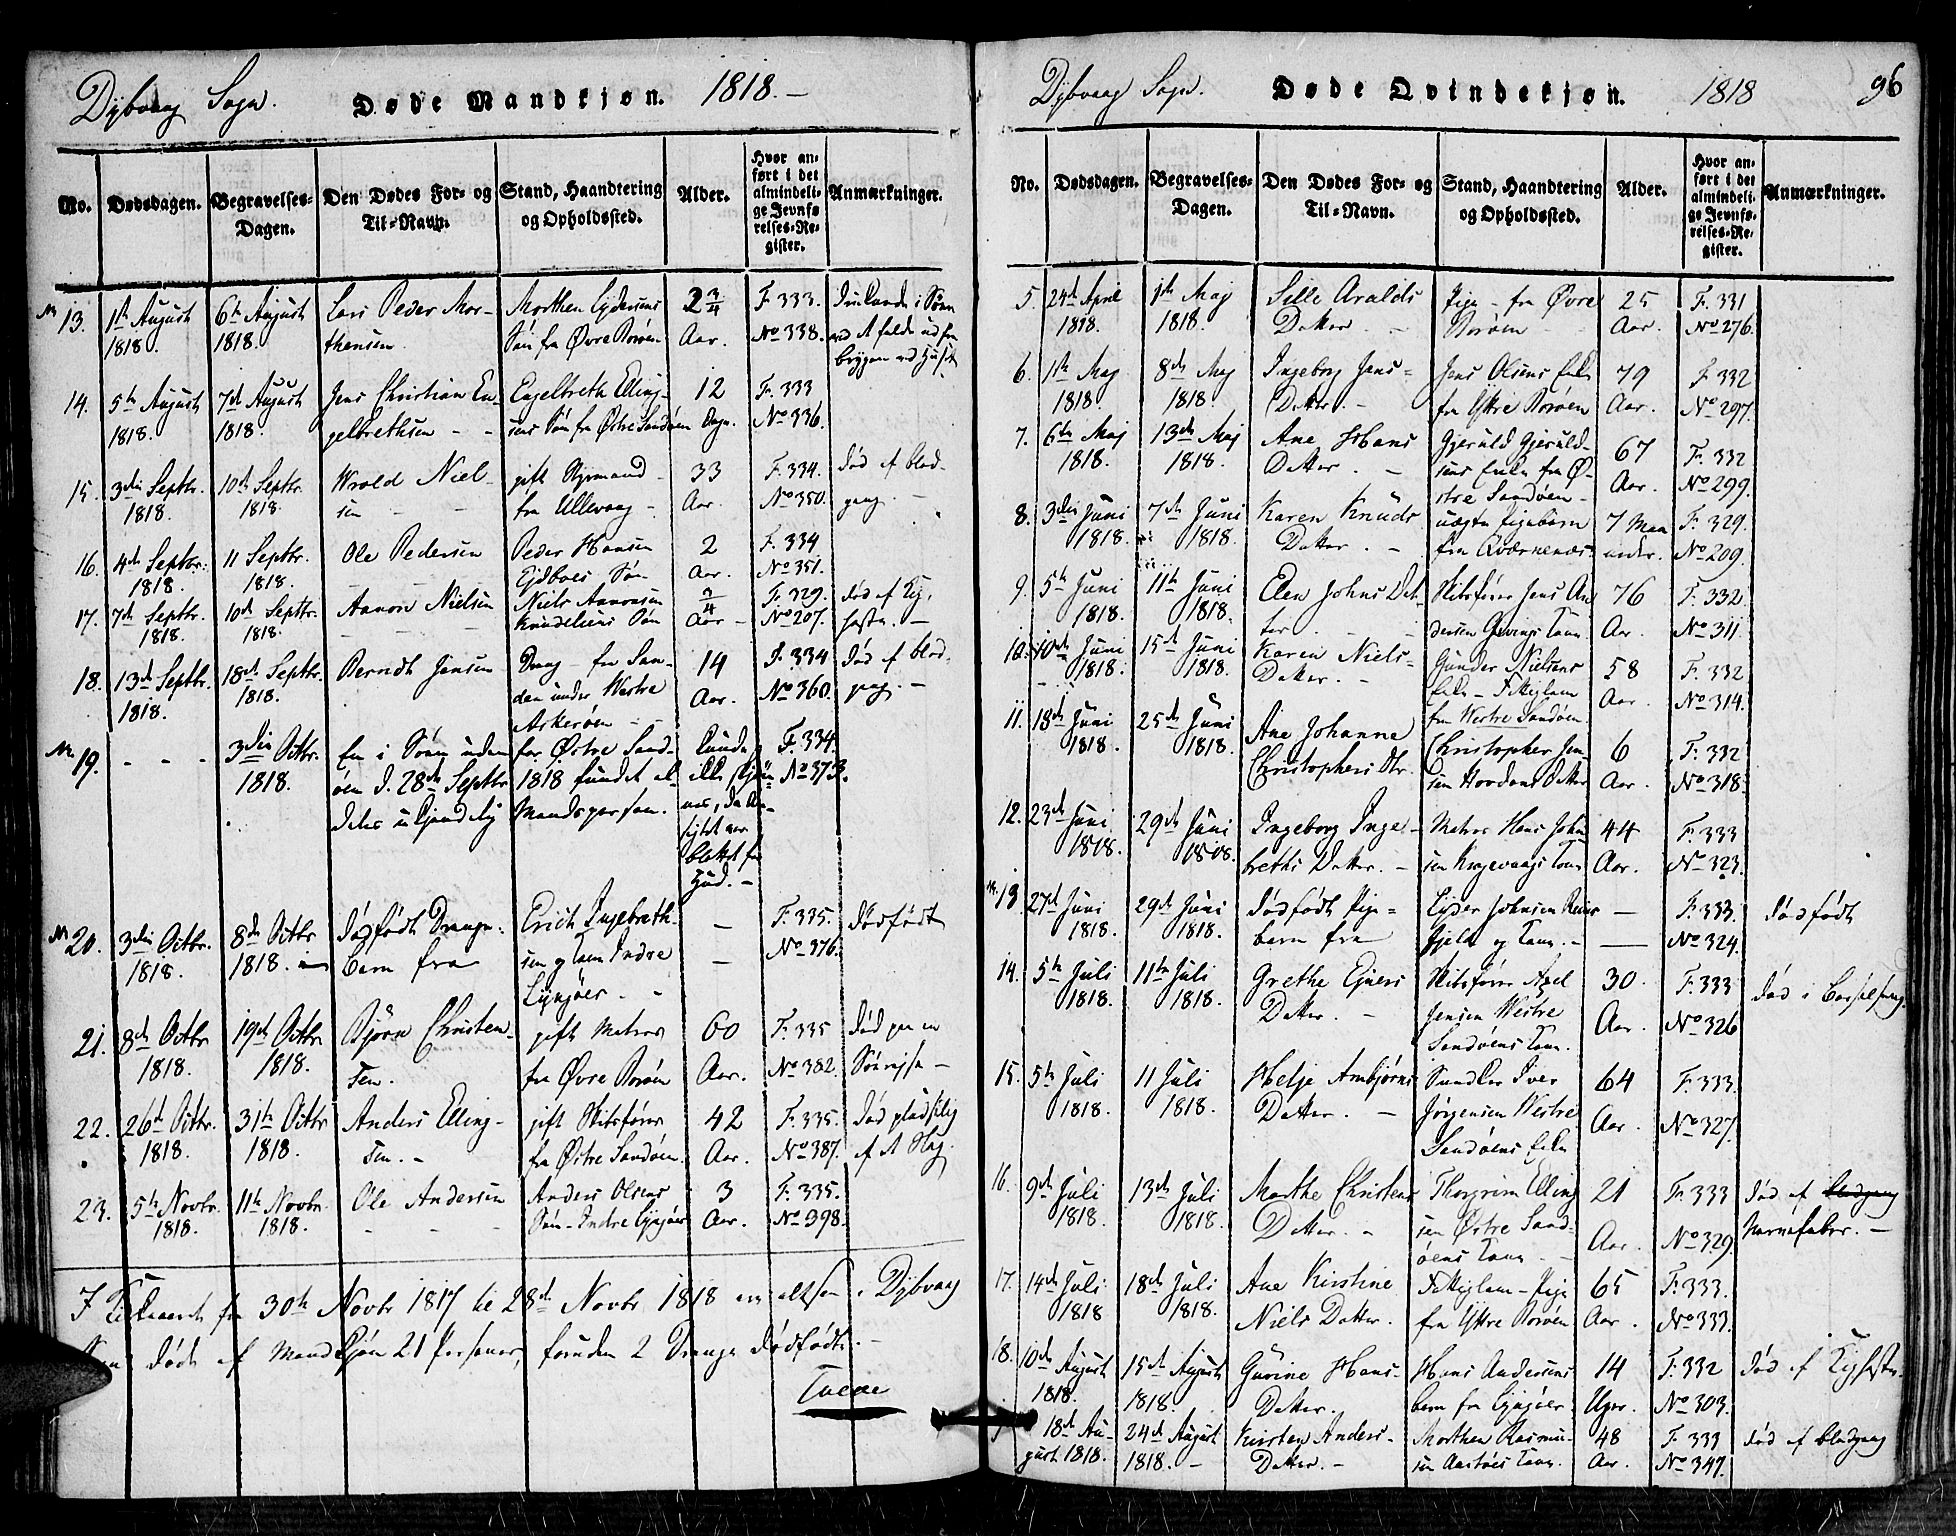 Dybvaag Sogn. Døde Mandkjøn. 1818.
No. Dødsdagen. Begravelses-Dagen. Den Dødes For- og Til-Navn. Stand, Haandtering og Opholdssted. Alder. Hvor anført i det almindelige Jevnførelses-Register. Anmærkninger.
13. 1te August 1818. 6te August 1818. Lars Peder Morthensen. Morthen Ejdersens Søn fra Øvre Borøen 2 3/4 Aar. F. 333. No 338.
14. 5te August 1818. 7de August 1818. Jens Christian Engelbrethsen Engelbreth Ellingsens Søn fra Østre Sandøen 12 Dage. F. 333 No 336.
15. 3die Septbr. 1818. 10de Septbr. 1818. Wrold Nielsen gift Styrmand fra Ullevaag 33 Aar. F. 334. No 350. død af Blodgang.
16. 4de Septbr. 1818. 11 Septbr. 1818. Ole Pedersen Peder Hansen Ejdboes Søn 2 Aar. F. 334 No 351.
17. 7de Septbr. 1818. 10de Septbr. 1818. Aanon Nielsen Niels Aanonsen Knudeliens Søn 3/4 Aar F. 329. No 207. død af Kighoste.
18. 13de Septbr. 1818. 18de Septbr. 1818. Berndt Jensen Dreng fra Sanden under Westre Askerøen 14 Aar. F. 334 No 360. Død af Blodgang.
19. - - - 3die Octbr. 1818. En i Søen uden for Østre Sandøen d. 28de Septbr 1818 fundet aldeles ukjendelig Mandsperson. Kunde ikke skjønnes, da Ansigtet var blottet for Hud. F. 334. No 373.
20. 3die Octbr. 1818. 8de Octbr 1818. dødfødt Drengebarn fra Erich Ingebrethsen og Kone Indre Lyngøer. - F. 335. No 376. dødfødt
21. 8de Octbr 1818. 19de Octbr 1818. Bjørn Christensen. gift Matros fra Øvre Borøen 60 Aar. F. 335 No 382. død paa en Søereise
22. 26de Octbr. 1818. 31te Octbr 1818. Anders Ellingsen. gift Skibsfører fra Østre Sandøen. 42 Aar. F. 335. No 387. død pludselig af et Slag.
23. 5te Novbr. 1818. 11te Novbr. 1818. Ole Andersen Anders Olsens Søn Indre Lyngøer 3 Aar. F. 335. No 398.
I Kirkeaaret fra 30te Novbr 1817 til 28de Novbr 1818 er altsaa i Dybvaag
Sogn døde af Mandkjøn 21 Personer, foruden 2 Drenge dødfødte.
Dybvaag Sogn. Døde Qvindekjøn. 1818 96
No. Dødsdagen. Begravelses-Dagen. Den Dødes For- og Til-Navn. Stand, Haandtering og Opholdssted. Alder. Hvor anført i det almindelige Jevnførelses-Register. Anmærkninger.
5. 24de April 1818. 1te Maj 1818. Sille Aralds Datter Pige - fra Øvre Borøen 25 Aar. F. 331 No 276.
6. 1te Maj 1818. 8de Maj 1818. Ingeborg Jens Datter. Jens Olsens Enke fra Ytre Borøen 79 Aar. F. 332 No 297.
7. 6te Maj 1818. 13de Maj 1818. Ane Hans Datter. Gjeruld Gjeruldsens Enke fra Østre Sandøen 67 Aar. F. 332 No 299.
8. 3die Juni 1818. 7de Juni 1818. Karen Knuds Datter. uægte Pigebarn fra Qværnenes 7 Maaneder. F. 329. No 209.
9. 5te Juni 1818. 11te Juni 1818. Elen Johns Datter. Skibsfører Jens Andersen Gjevings Kone. 76 Aar. F. 332. No 311.
10. 10de Juni 1818. 15de Juni 1818. Karen Niels Datter. Gunder Nielsens Enke - Fattiglem fra Westre Sandøen 58 Aar. F. 332 No 314.
11. 18de Juni 1818. 25de Juni 1818. Ane Johanne Christophers Dtr. Christopher Jensen Hovdans Datter 6 Aar. F. 332 No 318.
12. 23de Juni 1818. 29de Juni 1818. Ingeborg Ingebreths Datter. Matros Hans Johnsen Krogevaags Kone 44 Aar. F. 333 No 323.
13. 27de Juni 1818. 29de Juni 1818. Dødfødt Pigebarn fra Ejder Johnsen og Kone. - F. 333. No 324. dødfødt
14. 5te Juli 1818. 11te Juli 1818. Grethe Ejners Datter. Skibsfører Axel Jensen Westre Sandøens Kone. 30. Aar. F. 333 No 326 død i Barselseng.
15. 5te Juli 1818. 11 Juli 1818. Helje Ambjørns Datter. Iver Jørgensen Westre Sandøens Enke 64 Aar. F. 333. No 327.
16. 9de Juli 1818. 13de Juli 1818. Marthe Christens Datter. Thorgrim Ellingsen Østre Sandøens Kone 21 Aar. F. 333 No 329. død af Nervefeber.
17. 14de Juli 1818 18de Juli 1818. Ane Kirstine Niels Datter. Fattiglem - Pige fra Ytre Borøen 65 Aar. F. 333. No 333.
18. 10de August 1818. 15de August 1818. Gurine Hans Datter. Hans Andersens barn fra Lyngøer 14 Uger. F. 332 No 303. død af Kighoste.
18de August 1818. 24de August 1818. Kirsten Anders Datter. Morthen Rasmusen Aastøes Kone. 48 Aar. F. 333 No 347. død af Blodgang